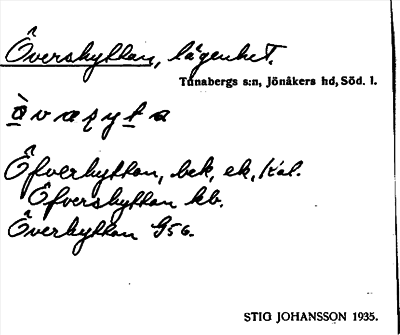 Överskyttan, lägenhet.
Tunabergs s:n, Jönåkers hd, Söd. l.
Öfverhyttan, bek, ek, kal.
Öfvershyttan kb.
Överhyttan G56.
STIG JOHANSSON 1935.